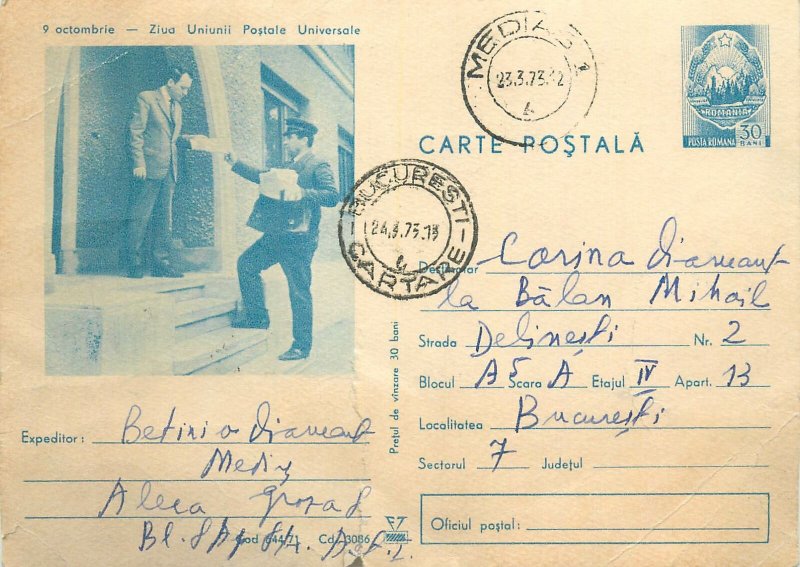 9 octombrie — Ziua Uniunii Poștale Universale
MEDIAȘ 1
23.3.73.12
ROMANIA
POSTA ROMANA 30 BANI
CARTE POȘTALĂ
BUCUREȘTI
24.3.73.13
CARTARE
Destinatar Corina
la Bălan Mihail
Strada Delinești Nr. 2
Blocul A5 Scara A Etajul IV Apart. 13
Localitatea București
Sectorul 7 Județul
Oficiul poștal:
Prețul de vînzare 30 bani
Expeditor:
Mediaș
Aleea
Bl. 8
Cod 644/71 Cd. 3086